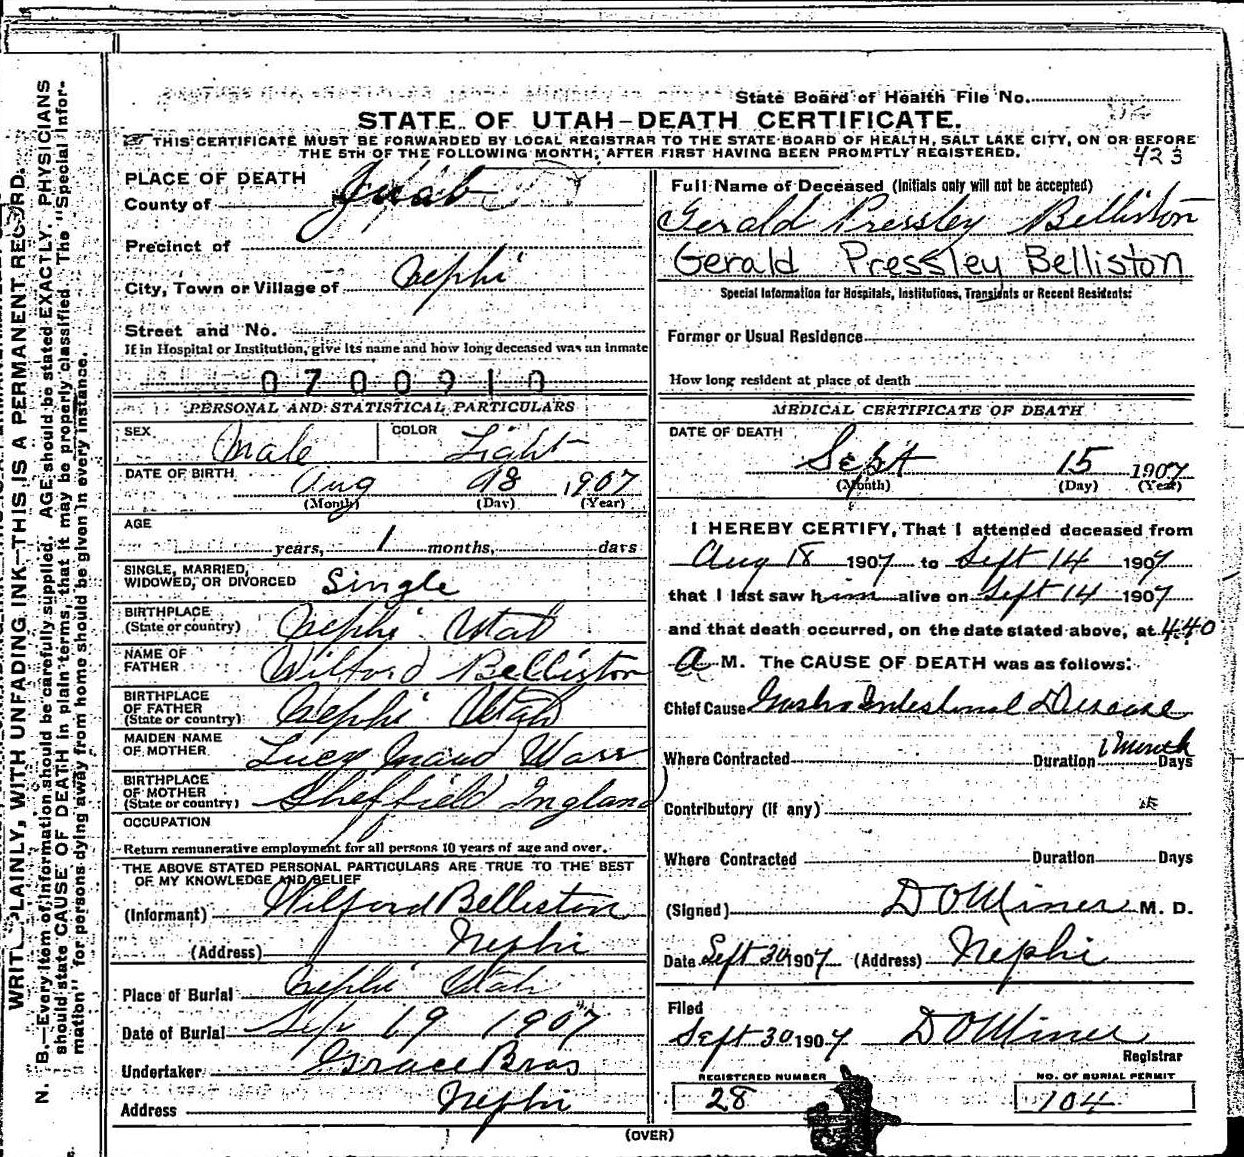 State Board of Health File No.
STATE OF UTAH—DEATH CERTIFICATE.
THIS CERTIFICATE MUST BE FORWARDED BY LOCAL REGISTRAR TO THE STATE BOARD OF HEALTH, SALT LAKE CITY, ON OR BEFORE
THE 5TH OF THE FOLLOWING MONTH, AFTER FIRST HAVING BEEN PROMPTLY REGISTERED.
423
PLACE OF DEATH
County of Juab
Precinct of
City, Town or Village of Nephi
Street and No.
If in Hospital or Institution, give its name and how long deceased was an inmate
0700910
Full Name of Deceased (Initials only will not be accepted)
Gerald Pressley Belliston
Gerald Pressley Belliston
Special Information for Hospitals, Institutions, Transients or Recent Residents:
Former or Usual Residence
How long resident at place of death
PERSONAL AND STATISTICAL PARTICULARS
SEX Male COLOR Light
DATE OF BIRTH Aug 18 1907
(Month) (Day) (Year)
AGE
years, 1 months, days
SINGLE, MARRIED,
WIDOWED, OR DIVORCED Single
BIRTHPLACE
(State or country) Nephi Utah
NAME OF
FATHER Wilford Belliston
BIRTHPLACE
OF FATHER
(State or country) Nephi Utah
MAIDEN NAME
OF MOTHER Lucy Maud Warr
BIRTHPLACE
OF MOTHER
(State or country) Sheffield Ingland
OCCUPATION
Return remunerative employment for all persons 10 years of age and over.
THE ABOVE STATED PERSONAL PARTICULARS ARE TRUE TO THE BEST
OF MY KNOWLEDGE AND BELIEF
(Informant) Wilford Belliston
(Address) Nephi
Place of Burial Nephi Utah
Date of Burial Sep 19 1907
Undertaker Grace Bros
Address Nephi
MEDICAL CERTIFICATE OF DEATH
DATE OF DEATH
Sept 15 1907
(Month) (Day) (Year)
I HEREBY CERTIFY, That I attended deceased from
Aug 18 1907 to Sept 14 1907
that I last saw him alive on Sept 14 1907
and that death occurred, on the date stated above, at 4:40
A M. The CAUSE OF DEATH was as follows:
Chief Cause Gastro Intestinal Disease
Where Contracted Duration 1 Month Days
Contributory (if any)
Where Contracted Duration Days
(Signed) D O Miner M. D.
Date Sept 30 1907 (Address) Nephi
Filed
Sept 30 1907 D O Miner
Registrar
REGISTERED NUMBER
28
NO. OF BURIAL PERMIT
104
(OVER)
WRITE PLAINLY, WITH UNFADING INK—THIS IS A PERMANENT RECORD.
N. B.—Every item of information should be carefully supplied. AGE should be stated EXACTLY. PHYSICIANS
should state CAUSE OF DEATH in plain terms, that it may be properly classified. The "Special Infor-
mation" for persons dying away from home should be given in every instance.